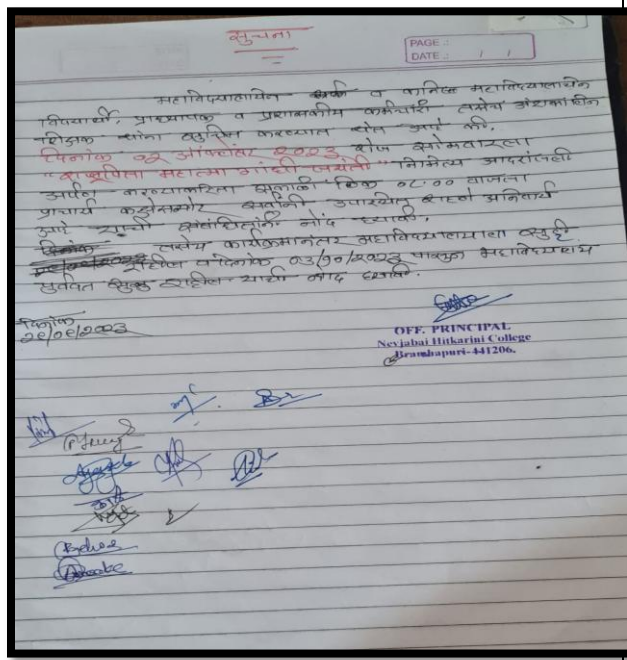 सुचना
PAGE :
DATE : / /
महाविद्यालयातील व कनिष्ठ महाविद्यालयातील
विद्यार्थी, प्राध्यापक व प्रशासकीय कर्मचारी तसेच अंशकालिन
शिक्षक यांना सुचित करण्यात येत आहे की,
दिनांक ०२ ऑक्टोंबर २०२३ रोज सोमवारला
"राष्ट्रपिता महात्मा गांधी जयंती" निमित्य आदरांजली
अर्पण करण्याकरिता सकाळी ठिक ०८:०० वाजता
प्राचार्य कक्षासमोर सर्वांनी उपस्थित राहणे अनिवार्य
आहे याची संबंधितांनी नोंद घ्यावी.
तसेच कार्यक्रमानंतर महाविद्यालयाला सुट्टी
राहील दिनांक ०३/१०/२०२३ पासून महाविद्यालय
पुर्ववत सुरू राहील याची नोंद घ्यावी.
दिनांक
OFF. PRINCIPAL
Nevjabai Hitkarini College
Bramhapuri-441206.